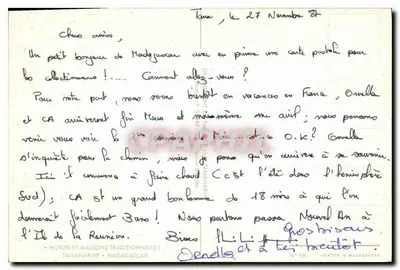 Tana, le 27 Novembre 87
Chers amis,
Un petit bonjour de Madagascar avec en prime une carte postale pour
les collectionneurs !.... Comment allez-vous ?
Pour notre part, nous serons bientôt en vacances en France, Ornella
et CA arriveront fin Mars et moi-même mi avril ; nous pensons
venir vous voir la 1ère semaine de Mai... O.K ? Ornella
s'inquiète pour le chemin, mais je pense qu'on arrivera à se souvenir.
Ici il commence à faire chaud (c'est l'été dans l'hémisphère
Sud) ; CA est un grand bonhomme de 18 mois à qui l'on
donnerait facilement 3 ans ! Nous pensons passer Nouvel An à
l'Ile de la Réunion. Bises
Gros bisous
Ornella et à très bientôt
HILTON ET MAISONS TRADITIONNELLES
TANANARIVE - MADAGASCAR